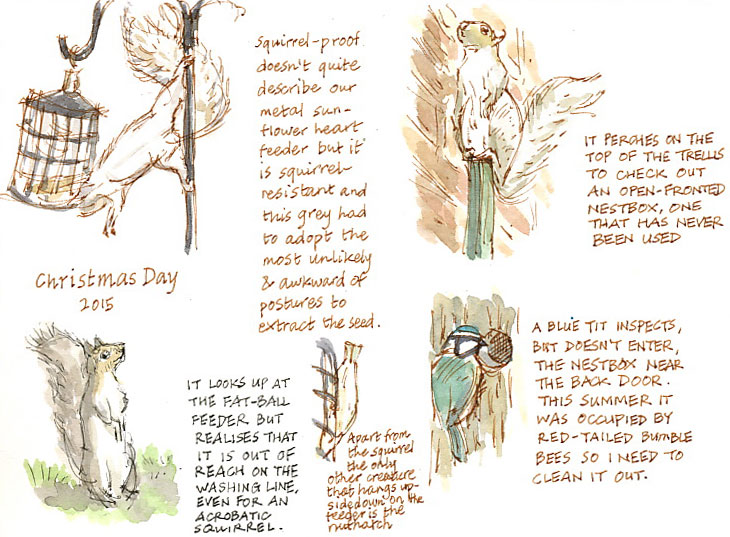 Squirrel-proof
doesn't quite
describe our
metal sun-
flower heart
feeder but it
is squirrel-
resistant and
this grey had
to adopt the
most unlikely
& awkward of
postures to
extract the seed.
IT PERCHES ON THE
TOP OF THE TRELLIS
TO CHECK OUT
AN OPEN-FRONTED
NESTBOX, ONE
THAT HAS NEVER
BEEN USED
Christmas Day
2015
IT LOOKS UP AT
THE FAT-BALL
FEEDER BUT
REALISES THAT
IT IS OUT OF
REACH ON THE
WASHING LINE,
EVEN FOR AN
ACROBATIC
SQUIRREL.
Apart from
the squirrel
the only
other creature
that hangs up-
side down on the
feeder is the
nuthatch
A BLUE TIT INSPECTS,
BUT DOESN'T ENTER,
THE NESTBOX NEAR
THE BACK DOOR.
THIS SUMMER IT
WAS OCCUPIED BY
RED-TAILED BUMBLE
BEES SO I NEED TO
CLEAN IT OUT.